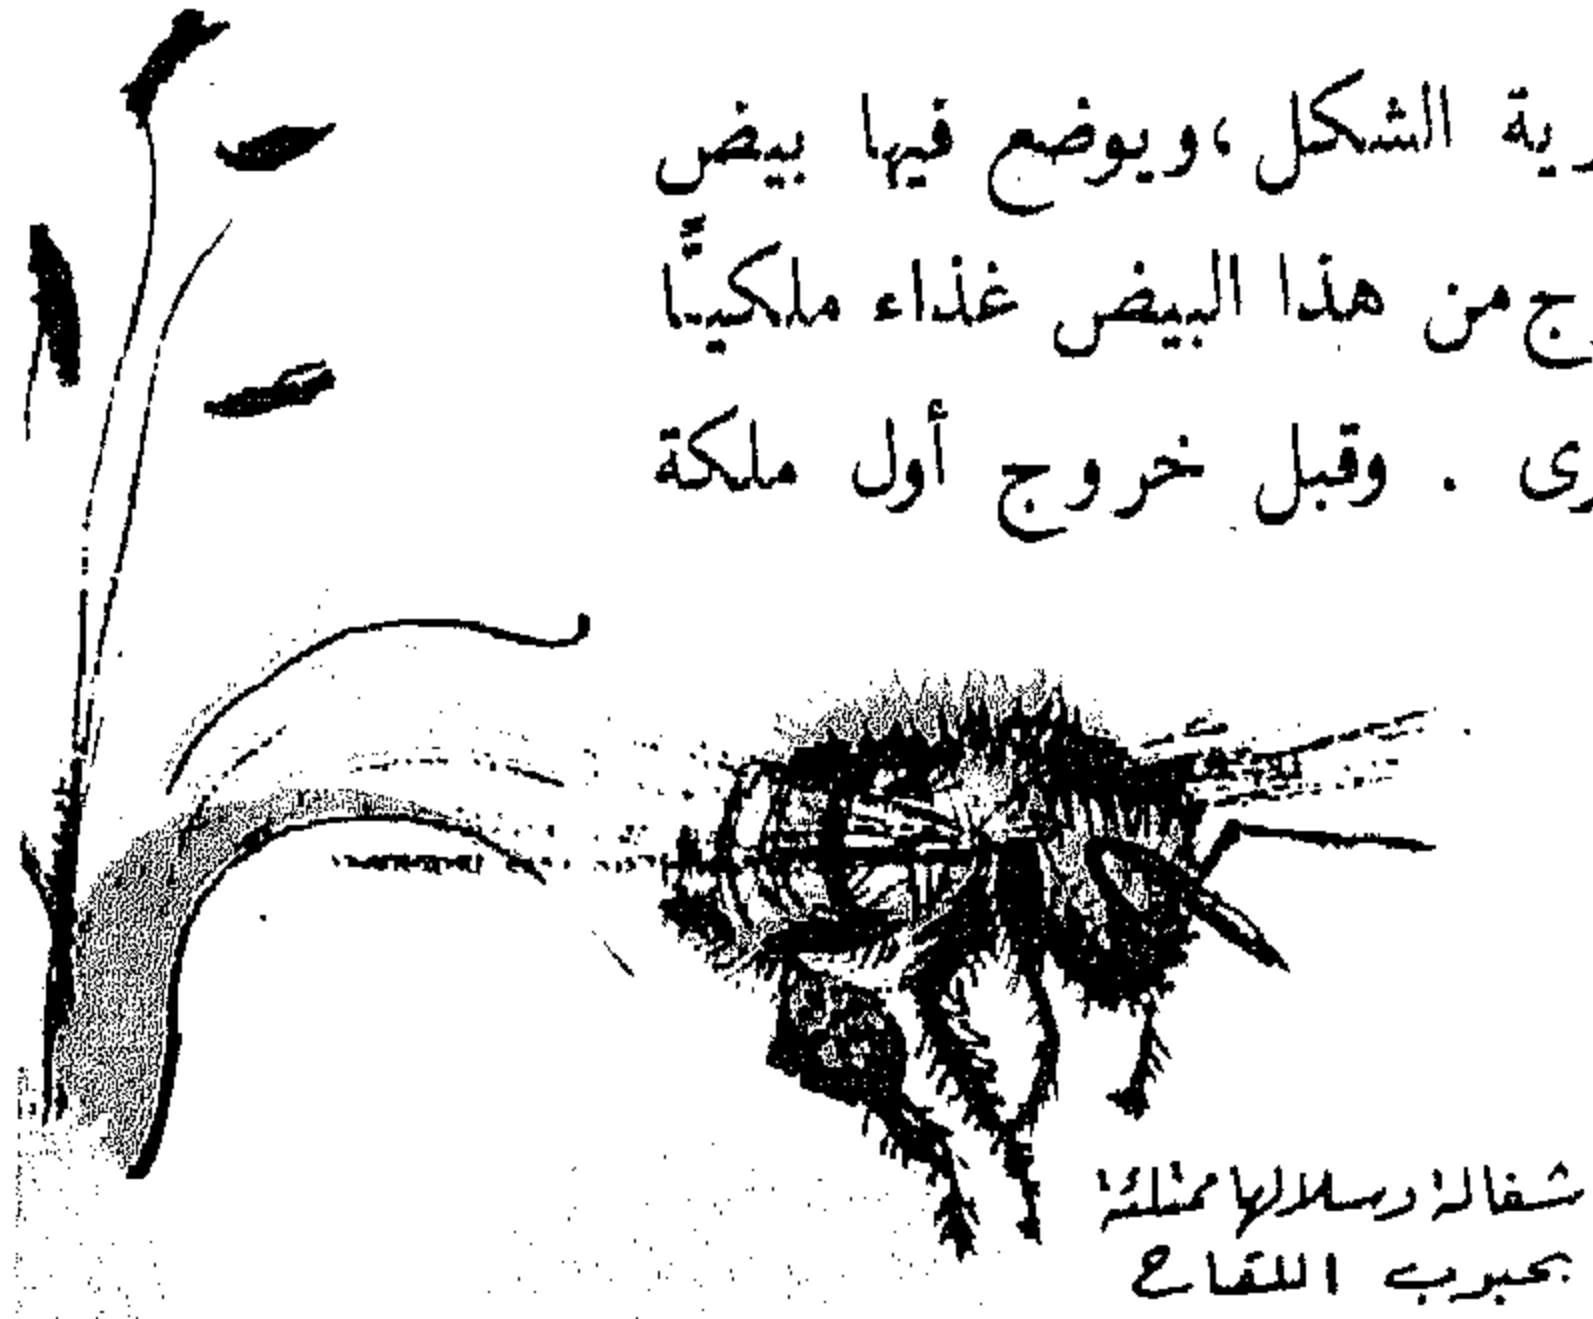 رية الشكل ، ويوضع فيها بيض
ج من هذا البيض غذاء ملكيًّا
رى . وقبل خروج أول ملكة
شغالة وسلالها ممتلئة
بحبوب اللقاح